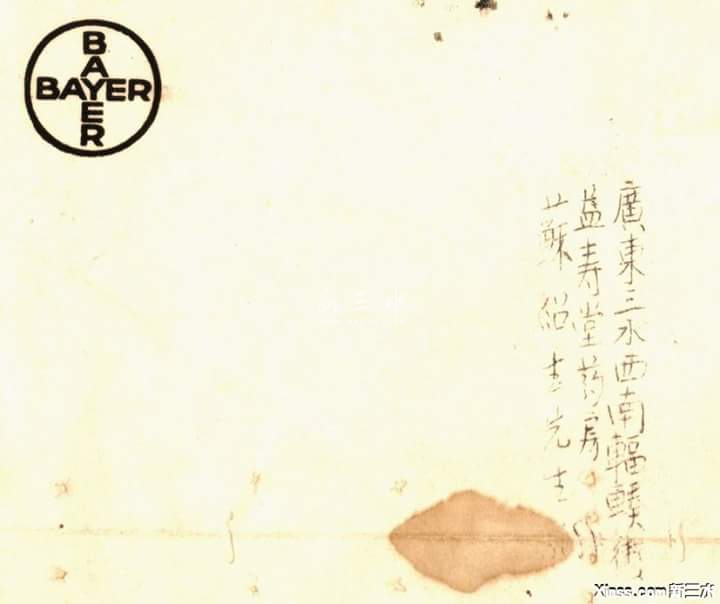 BAYER
BAYER
廣東三水西南輻輳街
益寿堂药房
蘇紹生先生
Xinss.com新三水